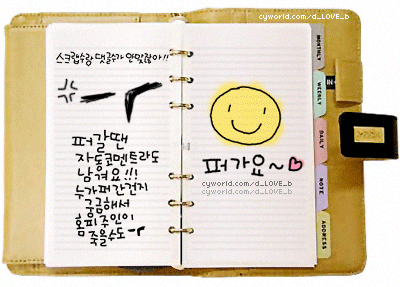 cyworld.com/d_LOVE_b
스크랩수랑 댓글수가 안맞잖아!!
퍼갈땐
자동코멘트라도
남겨요!!!
누가퍼간건지
궁금해서
홈피주인이
죽을수도ㅡㅜ
퍼가요~♡
cyworld.com/d_LOVE_b
cyworld.com/d_LOVE_b
MONTHLY
WEEKLY
DAILY
NOTE
ADDRESS